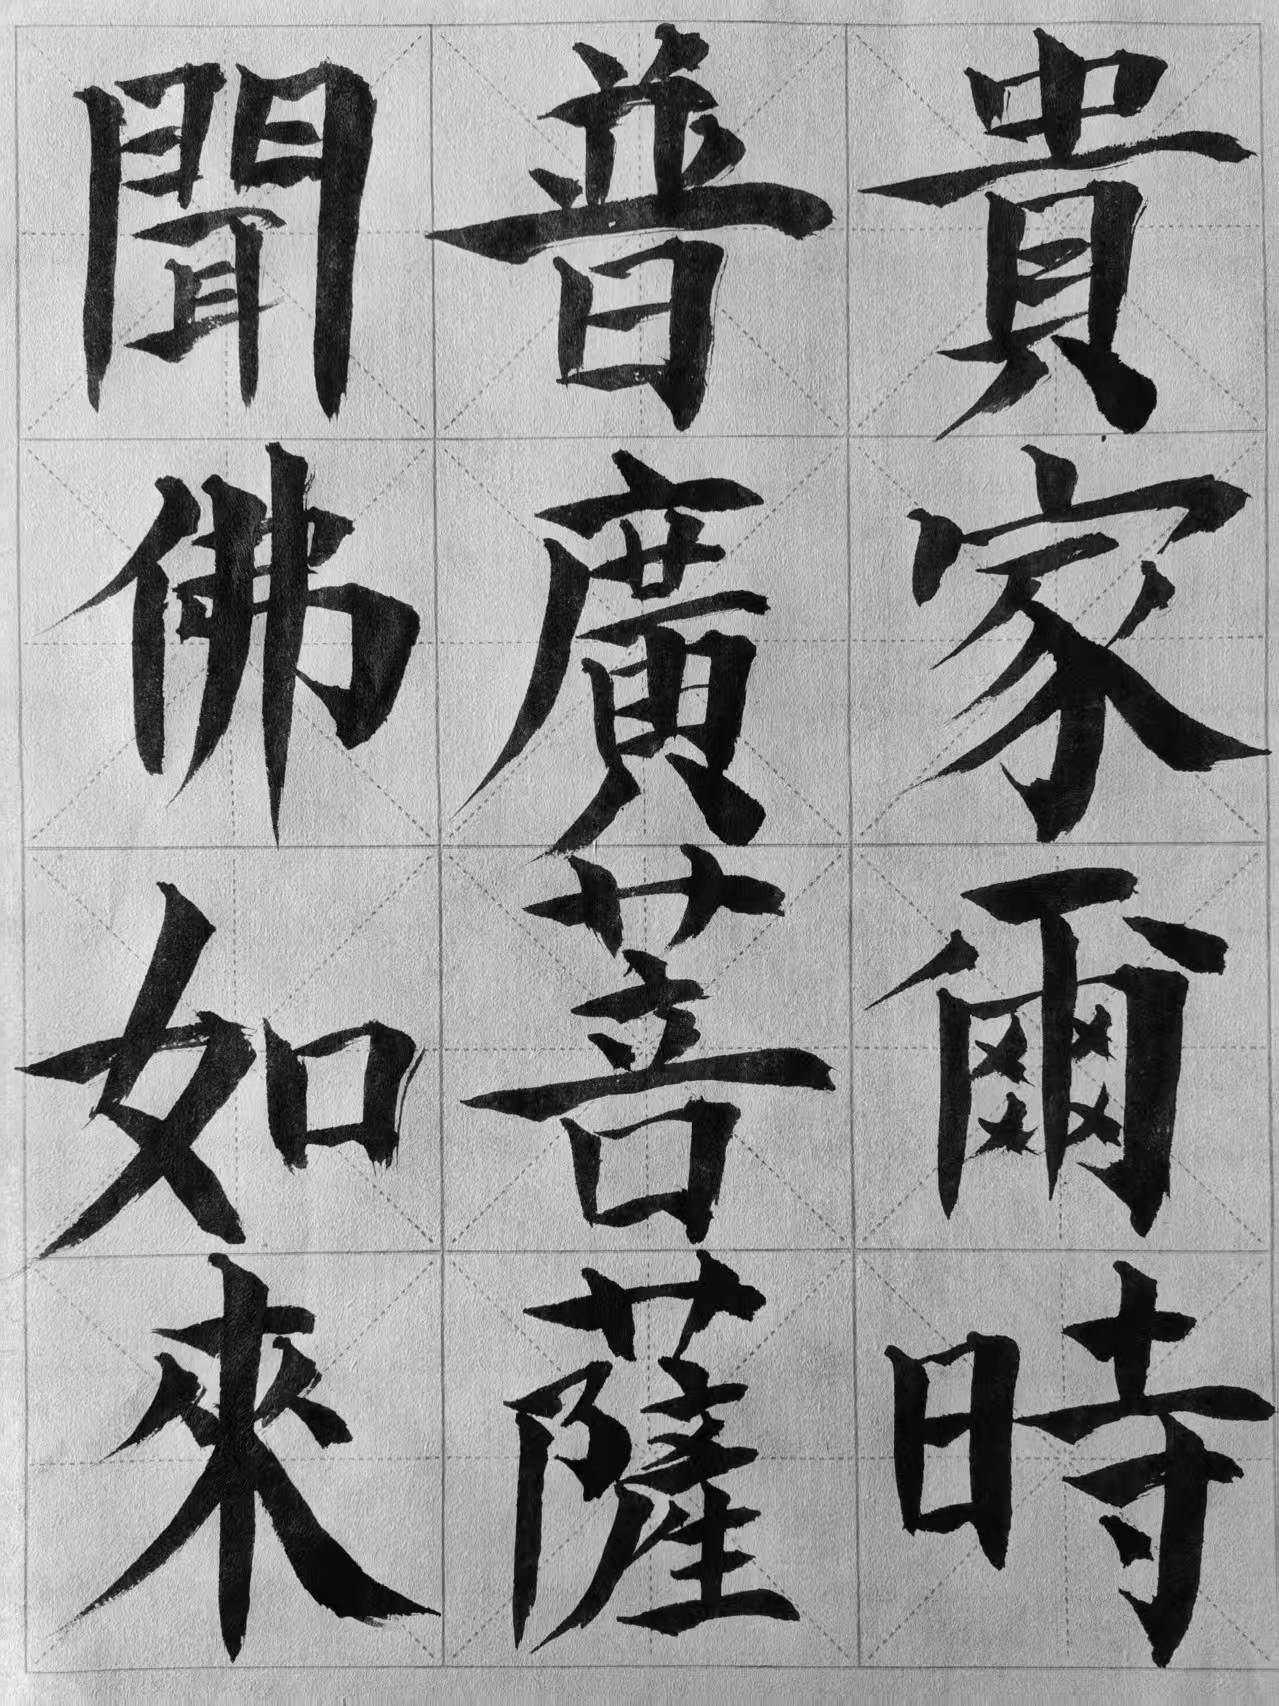 貴家爾時
普廣菩薩
聞佛如來